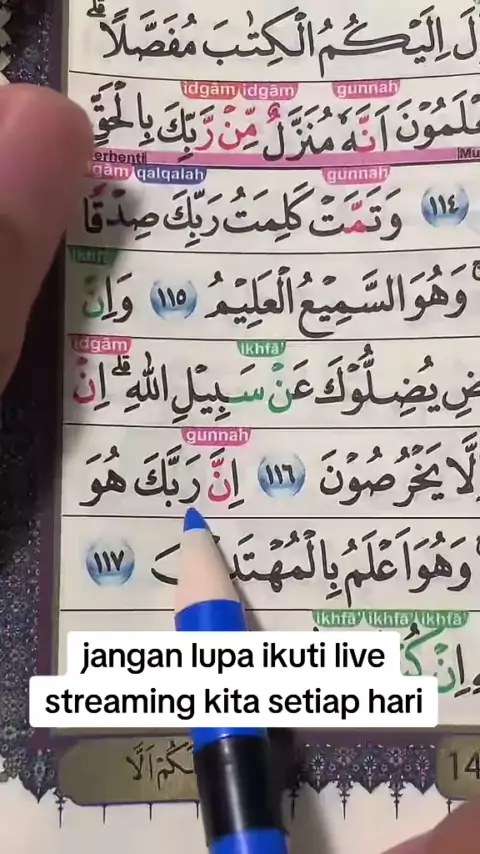 لَ اِلَيْكُمُ الْكِتٰبَ مُفَصَّلًاۗ
idgām idgām gunnah
عْلَمُوْنَ اَنَّهٗ مُنَزَّلٌ مِّنْ رَّبِّكَ بِالْحَقِّ
qalqalah gunnah
١١٤ وَتَمَّتْ كَلِمَتُ رَبِّكَ صِدْقًا
وَهُوَ السَّمِيْعُ الْعَلِيْمُ ١١٥ وَاِنْ
idgām ikhfā'
ضِ يُضِلُّوْكَ عَنْ سَبِيْلِ اللّٰهِۗ اِنْ
gunnah
اِلَّا يَخْرُصُوْنَ ١١٦ اِنَّ رَبَّكَ هُوَ
وَهُوَ اَعْلَمُ بِالْمُهْتَدِ ١١٧
ikhfā' ikhfā' ikhfā'
jangan lupa ikuti live
streaming kita setiap hari
14